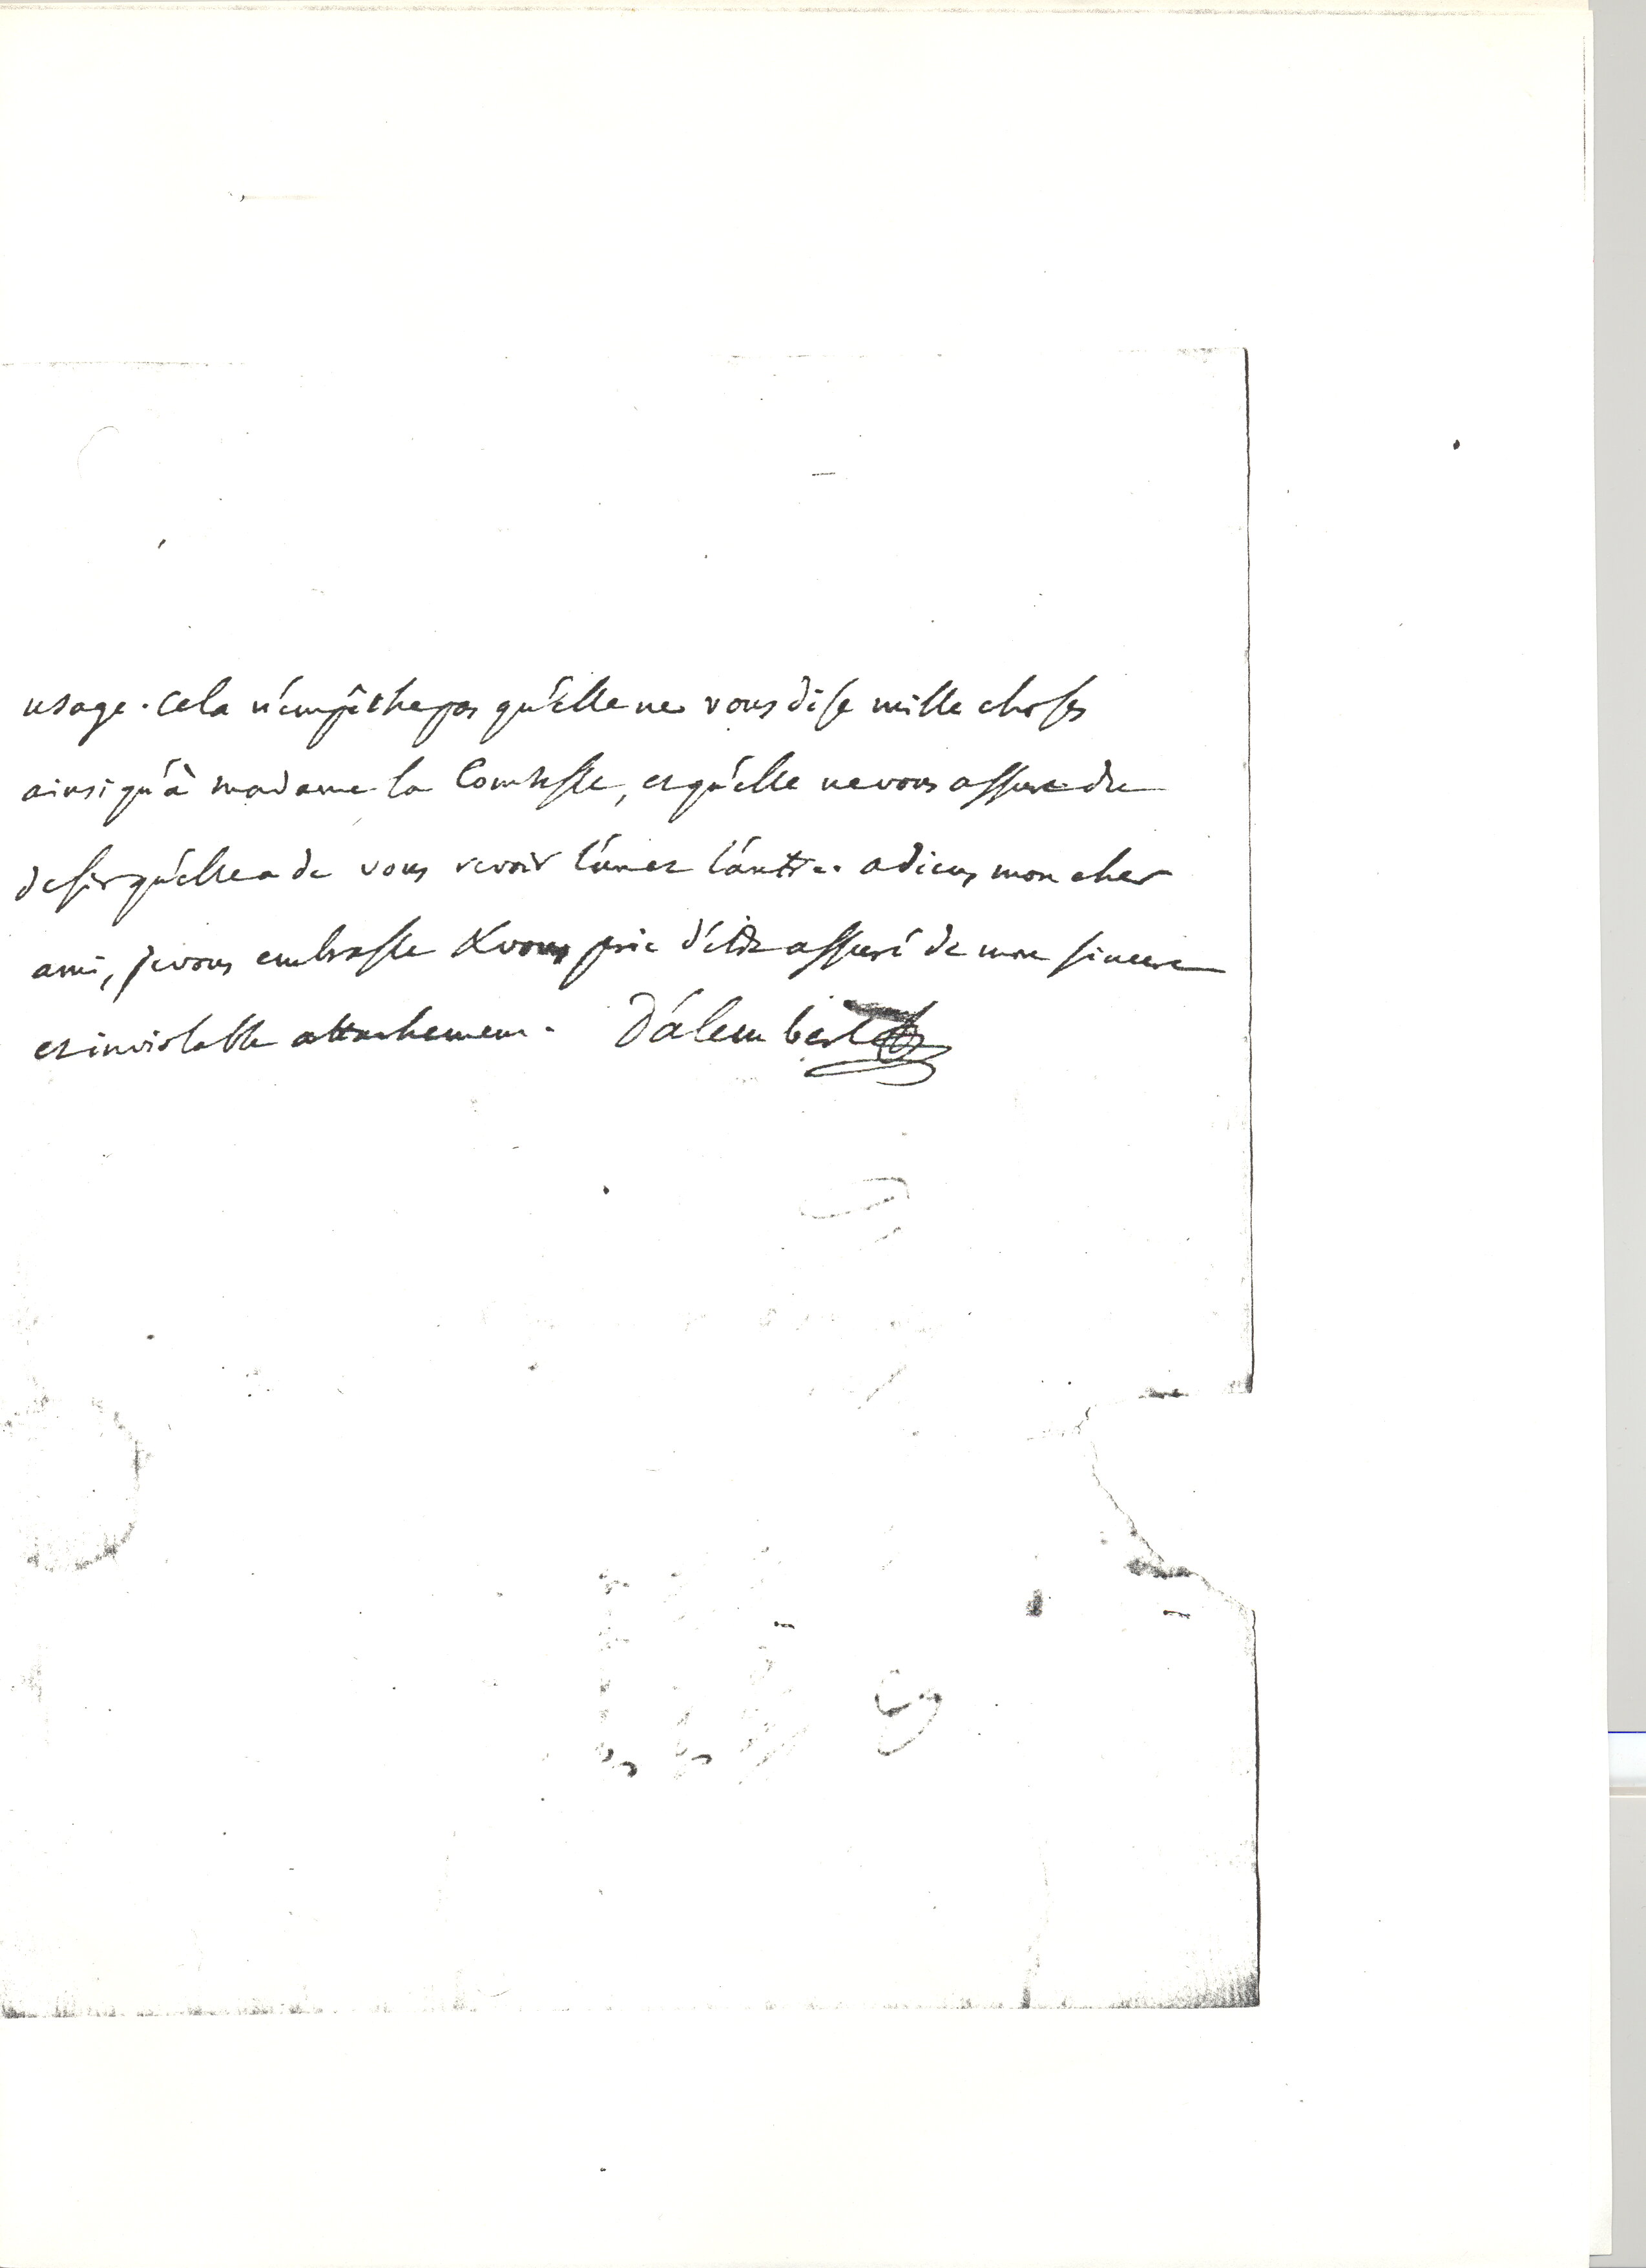 usage. cela n'empêche pas qu'elle ne vous dise mille choses
ainsi qu'à madame la Comtesse, et qu'elle ne vous assure du
desir qu'elle a de vous revoir l'un et l'autre. adieu, mon cher
ami, je vous embrasse & vous prie d'être assuré de mon sincere
et inviolable attachement. D'alembert